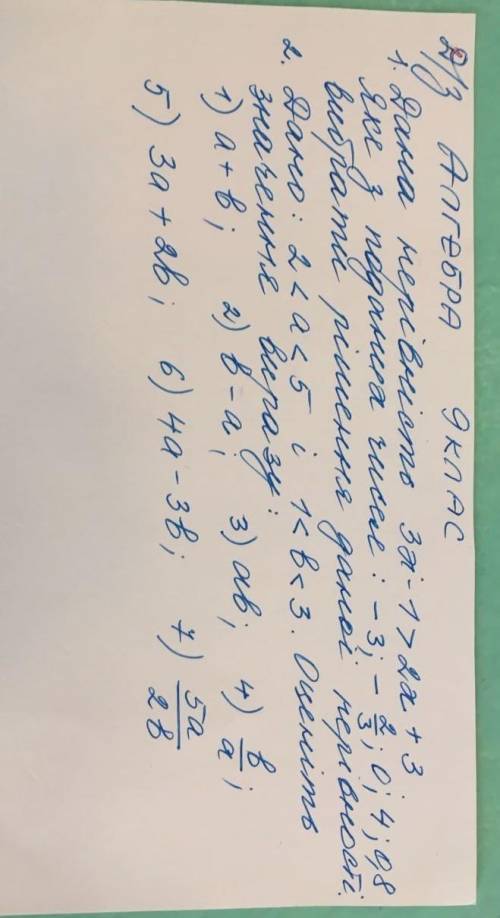 Д/З Алгебра 9 клас
1. Дана нерівність 3x-1>2x+3
Яке з поданих чисел: -3; -2/3; 0; 4; 0,8
вибрати рішення даної нерівності.
2. Дано: 2<a<5 і 1<b<3. Оцініть
значення виразу:
1) a+b; 2) b-a; 3) ab; 4) b/a;
5) 3a+2b; 6) 4a-3b; 7) 5a/2b